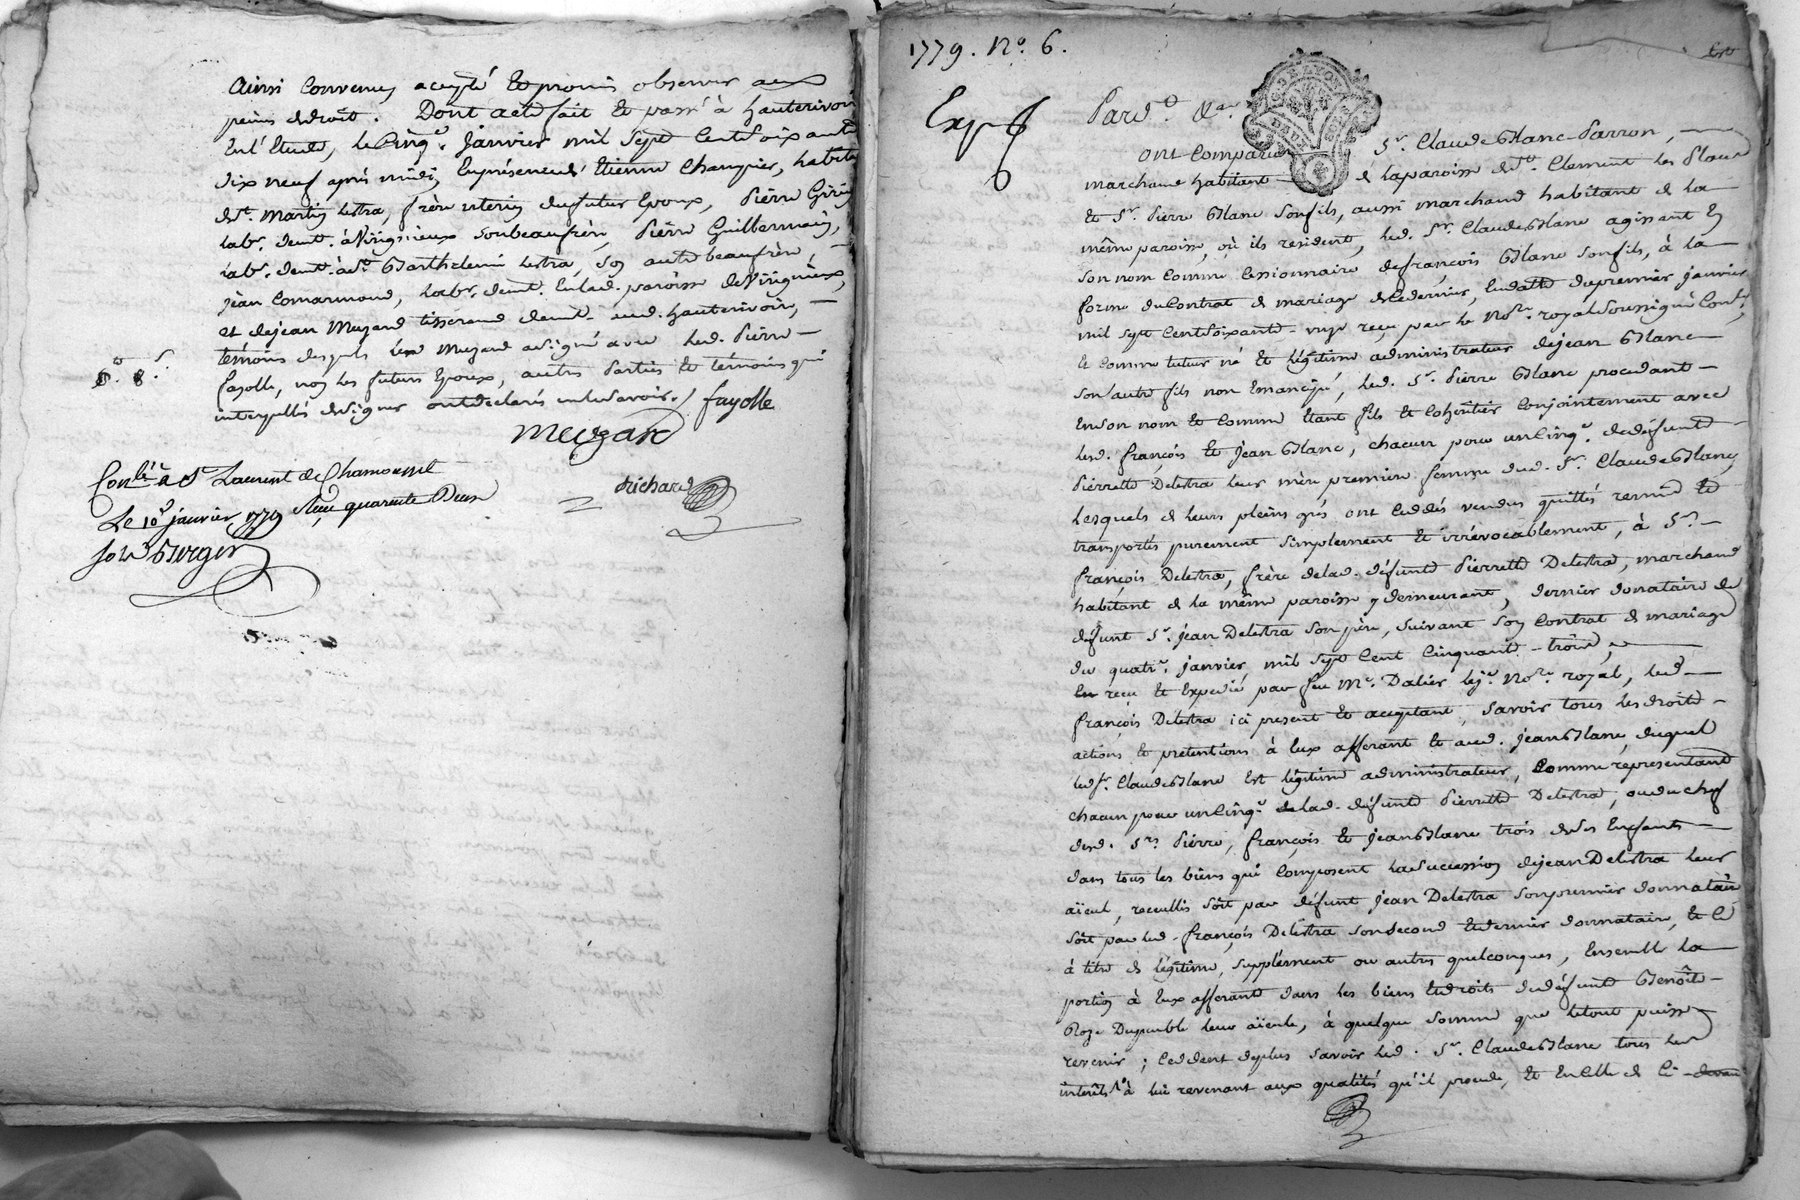 Ainsi convenu accepté et promis observer aux
peines de droit. Dont acte fait et passé à hauterivoir
En l'Etude, le cinq.e Janvier mil sept cent soixante
dix neuf après midi, En présence d'Etienne Changuier, habit.
de St. Martin lestra, frère uterin du futur Epoux, Pierre
lab.r demt. à Virigneux son beaufrère, Pierre Guillermain,
lab.r demt. à St. Barthelemi lestra, son autre beaufrère
Jean Comarmond, lab.r demt. En lad. paroisse de Virigneux,
et de Jean Muzard tisserand demt. aud. hauterivoir,
temoins desquels led Muzard a signé avec led. Pierre
fayolle, non les futurs Epoux, autres Parties et témoins qui
interpellés de signer ont déclaré ne le savoir. / fayolle
Muzard
Richard
Con.lé à St Laurent de Chamousset
Le 10 janvier 1779 Reçu quarente Deux
sols Berger
1779. N.o 6.
Exp.
Pard.t &a
ont comparu Sr. Claude Blanc-Parron,
marchand habitant de la paroisse de St. Clement les Places
Et Sr. Pierre Blanc son fils, aussi marchand habitant de la
même paroisse, où ils resident, led. Sr. Claude Blanc agissant En
son nom comme cessionnaire de françois Blanc son fils, à la
forme du contrat de mariage de ce dernier, En datte du premier janvier
mil sept cent soixante- reçu par le No.re royal soussigné
Et comme tuteur né et légitime administrateur de jean Blanc
son autre fils non Emancipé, led. Sr. Pierre Blanc procedant
En son nom et comme Etant fils et cohéritier conjointement avec
lesd. françois et jean Blanc, chacun pour un cinq.e de défunte
Pierrette Delestra leur mère premiere femme dud. Sr. Claude Blanc,
Lesquels de leurs pleins grés ont ceddés vendus quittés remis et
transportés purement simplement et irrévocablement, à Sr.
françois Delestra, frère de lad. défunte Pierrette Delestra, marchand
habitant de la même paroisse y demeurant, dernier donataire de
défunt Sr. jean Delestra son père, suivant son contrat de mariage
du quatr.e janvier mil sept cent cinquante-trois,
reçu et Expedié par feu Me. Dalier No.re royal, led.
françois Delestra ici present et acceptant, savoir tous les droits
actions et pretentions à Eux afferant et aud. jean Blanc, duquel
led Sr. Claude Blanc Est légitime administrateur, comme representant
chacun pour un cinq.e de lad. défunte Pierrette Delestra, ou du chef
desd. Srs. Pierre, françois et jean Blanc trois de ses Enfants
dans tous les biens qui composent la succession de jean Delestra leur
aïeul, recueillis soit par défunt jean Delestra son premier donnataire
soit par led. françois Delestra son second et dernier donnataire, et ce
à titre de légitime, supplément ou autres quelconques, Ensemble la
portion à Eux afferante dans les biens et droits de défunte Benoîte
Roze Dupuble leur aïeule, à quelque somme que le tout puisse
revenir; ceddent de plus savoir led. Sr. Claude Blanc tous les
intérêts à lui revenant aux qualités qu'il procede, et En celle de ci-devant